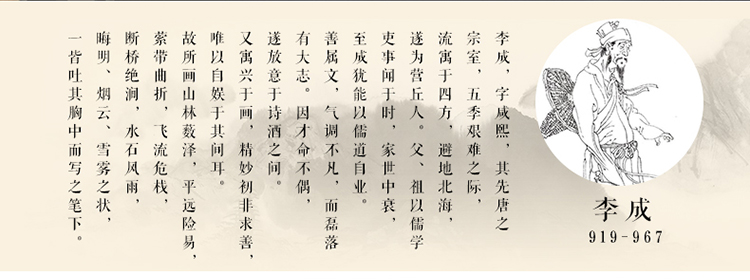 李成，字咸熙，其先唐之
宗室，五季艰难之际，
流寓于四方，避地北海，
遂为营丘人。父、祖以儒学
吏事闻于时，家世中衰，
至成犹能以儒道自业。
善属文，气调不凡，而磊落
有大志。因才命不偶，
遂放意于诗酒之间。
又寓兴于画，精妙初非求善，
唯以自娱于其间耳。
故所画山林薮泽，平远险易，
萦带曲折，飞流危栈，
断桥绝涧，水石风雨，
晦明、烟云、雪雾之状，
一皆吐其胸中而写之笔下。
李成
919-967